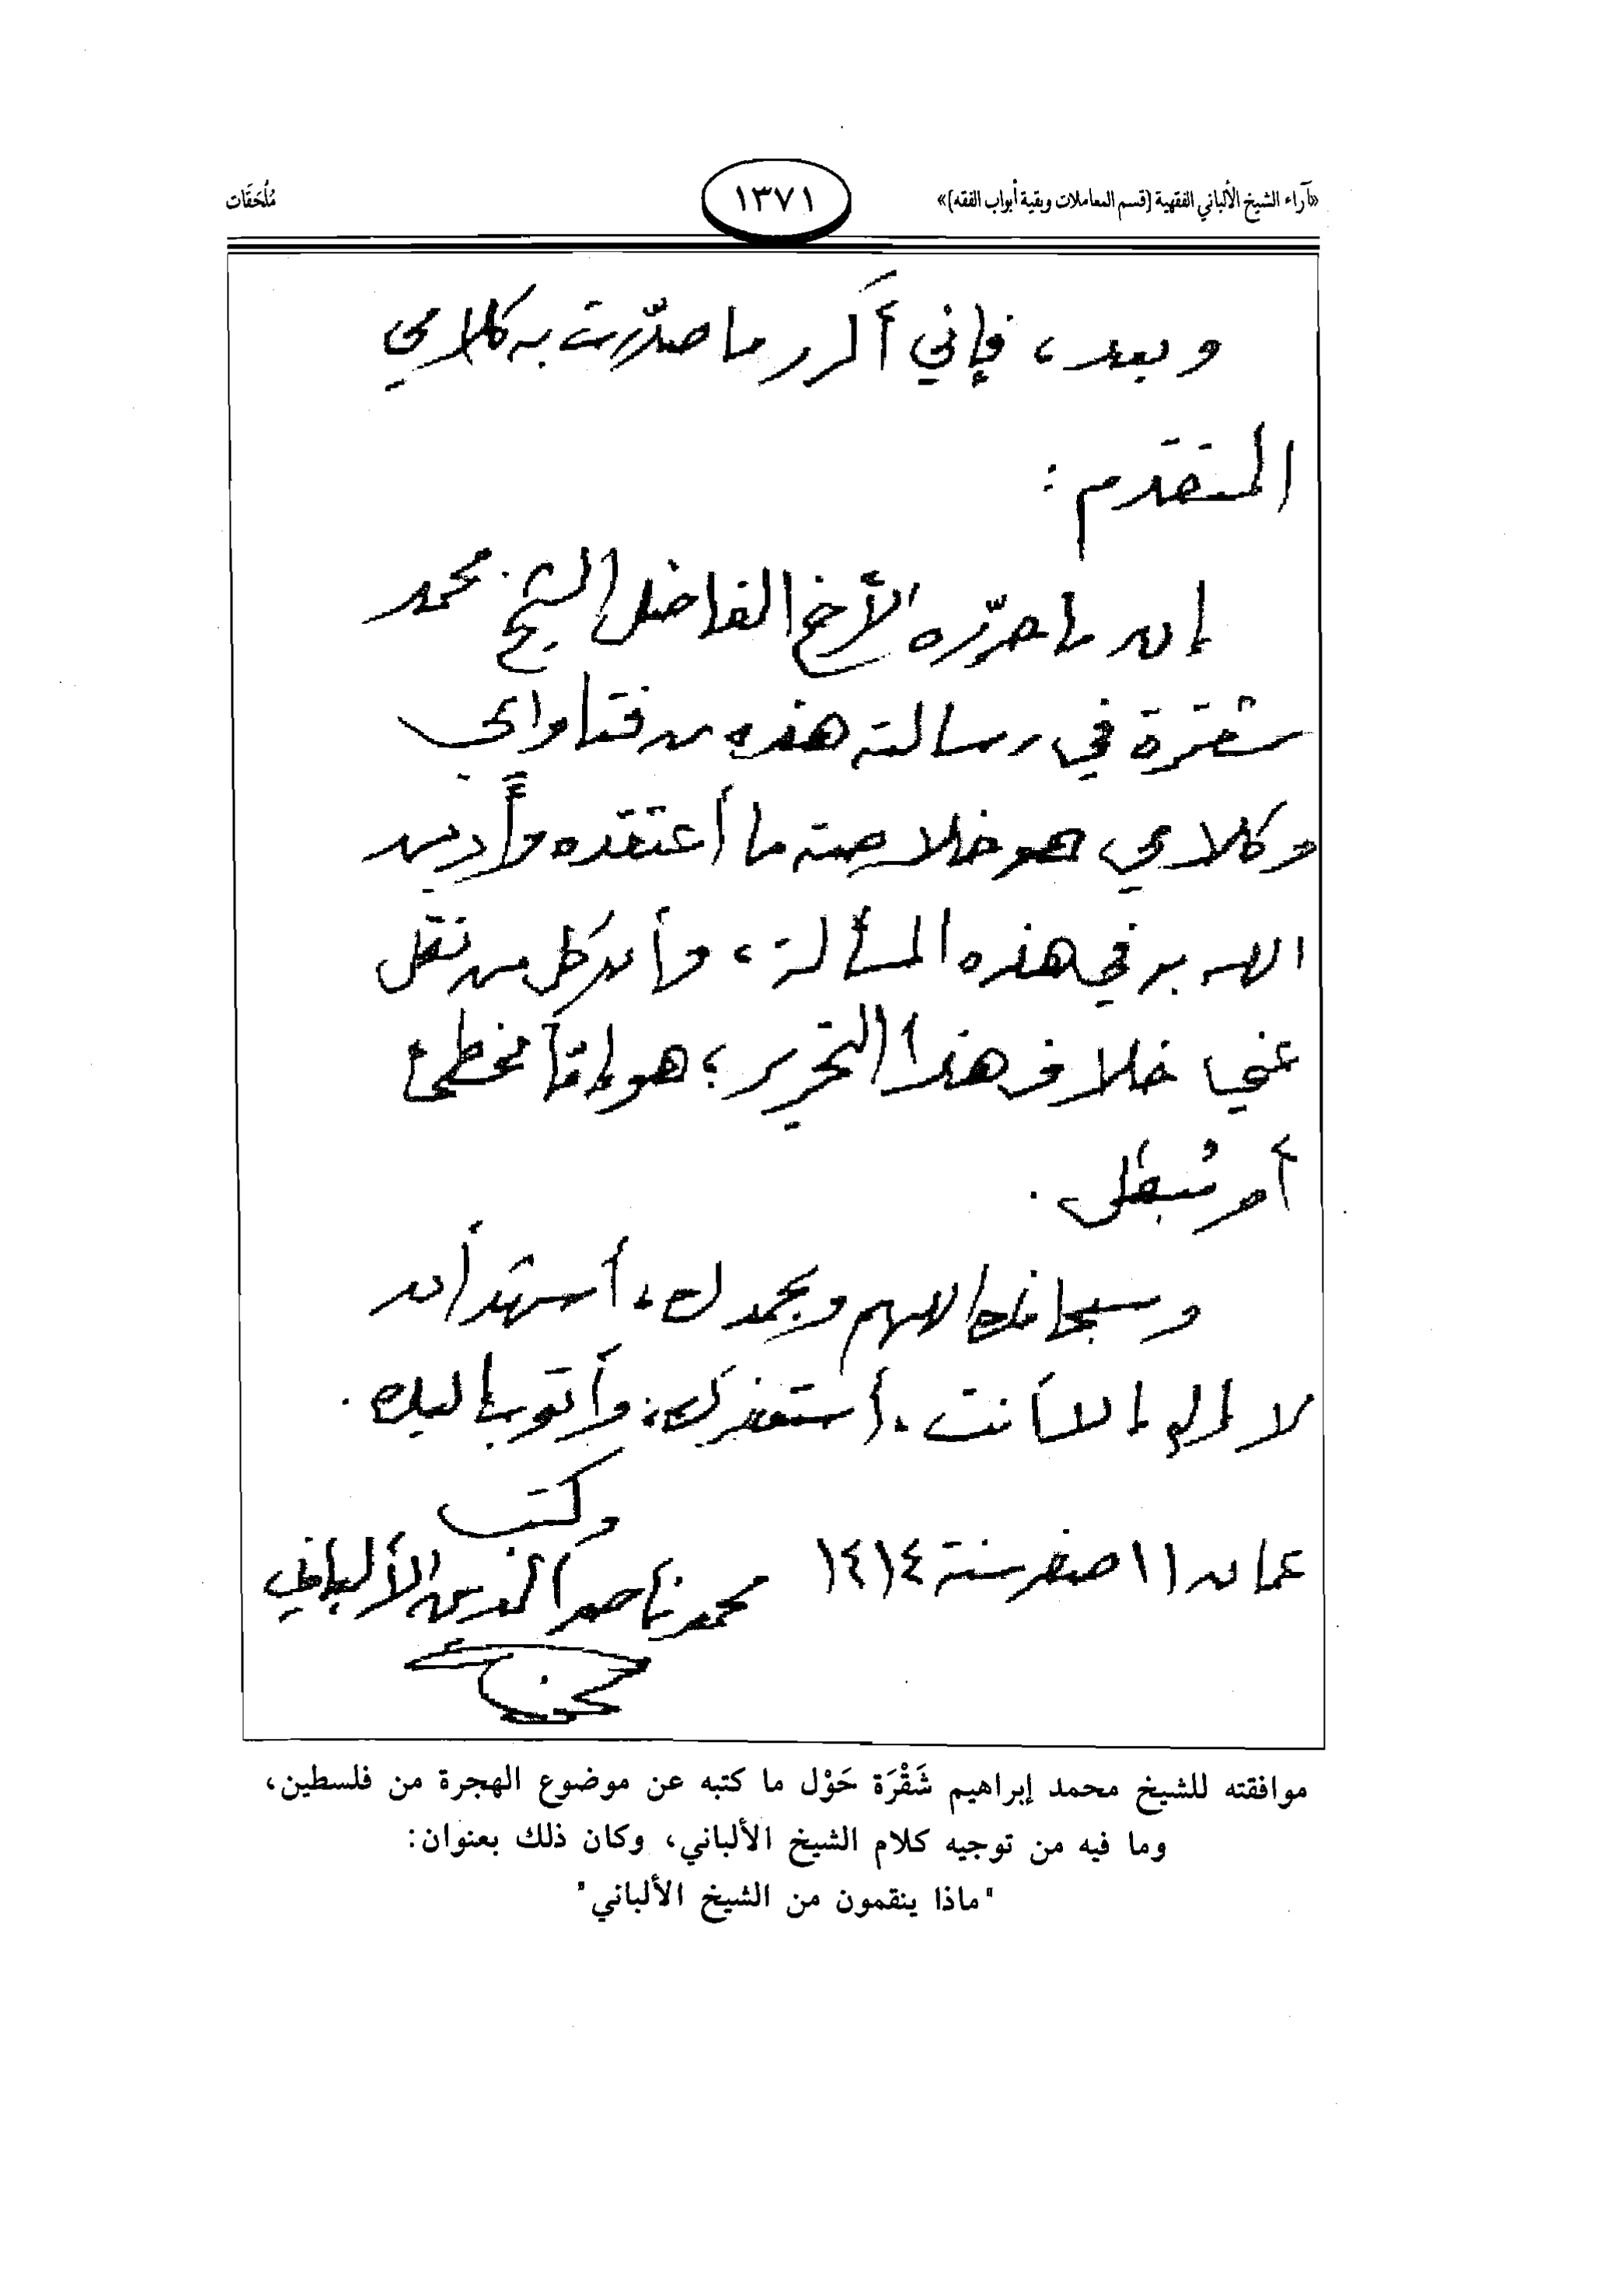 «آراء الشيخ الألباني الفقهية (قسم المعاملات وبقية أبواب الفقه)» ١٣٧١ مُلْحَقَات
وبعد، فإني أكرر ما صدّرت به كلامي
المتقدم :
إن ما حرّره الأخ الفاضل الشيخ محمد
شقرة في رسالته هذه من فتاواي
وكلامي، هو خلاصة ما أعتقده وأدين
الله به في هذه المسألة، وأن كل من نقل
عني خلاف هذا التحرير؛ هو إمّا مخطئ
أو مُبطل .
وسبحانك اللهم وبحمدك، أشهد أن
لا إله إلا أنت، أستغفرك، وأتوب إليك .
وكتب
عمان ١١ صفر سنة ١٤١٤ محمد ناصر الدين الألباني
موافقته للشيخ محمد إبراهيم شَقْرَة حَوْل ما كتبه عن موضوع الهجرة من فلسطين،
وما فيه من توجيه كلام الشيخ الألباني، وكان ذلك بعنوان:
"ماذا ينقمون من الشيخ الألباني"